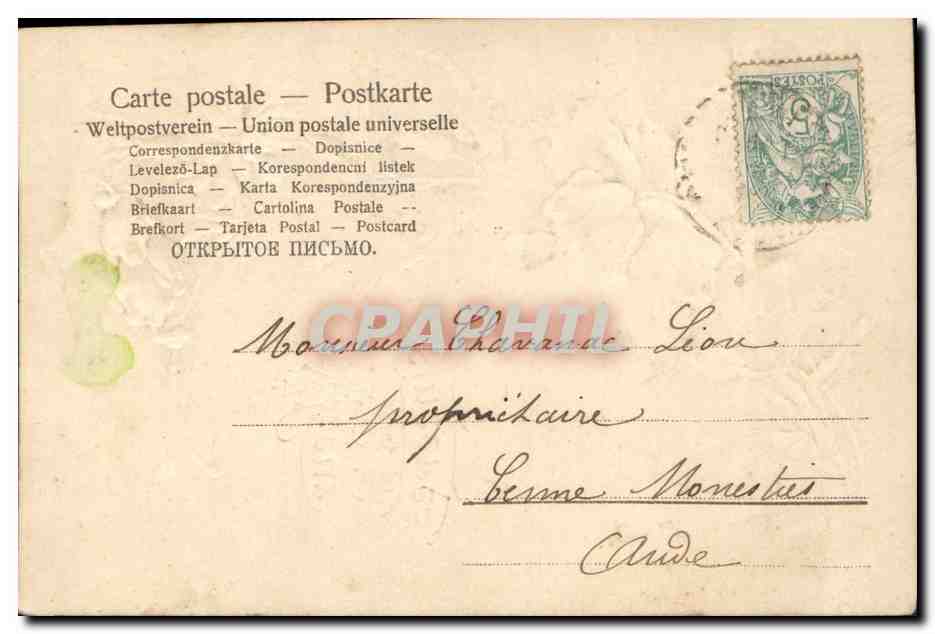 Carte postale — Postkarte
Weltpostverein — Union postale universelle
Correspondenzkarte — Dopisnice —
Levelező-Lap — Korespondencni listek
Dopisnica — Karta Korespondenzyjna
Briefkaart — Cartolina Postale --
Brefkort — Tarjeta Postal — Postcard
ОТКРЫТОЕ ПИСЬМО.
POSTES
5
CPARHIL
Monsieur Chavanac Léon
propriétaire
Cenne Monestiés
Aude